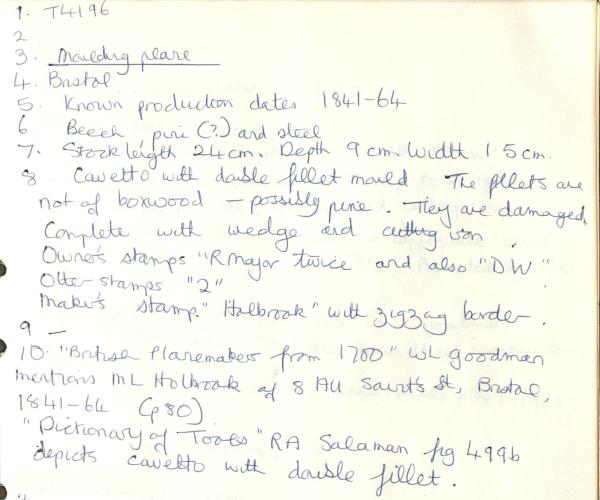 1. T4196
2
3. Moulding plane
4. Bristol
5. Known production dates 1841-64
6 Beech pine (?) and steel
7. Stock length 24cm. Depth 9cm. Width 1.5cm.
8 Cavetto with double fillet mould The fillets are
not of boxwood - possibly pine. They are damaged.
Complete with wedge and cutting iron.
Owner's stamps "R Major twice and also "DW".
Other stamps "2"
Maker's stamp "Holbrook" with zigzag border.
9 -
10. "British Planemakers from 1700" WL Goodman
mentions ML Holbrook of 8 All Saints St, Bristol,
1841-64 (p80)
"Dictionary of Tools" RA Salaman fig 499b
depicts cavetto with double fillet.